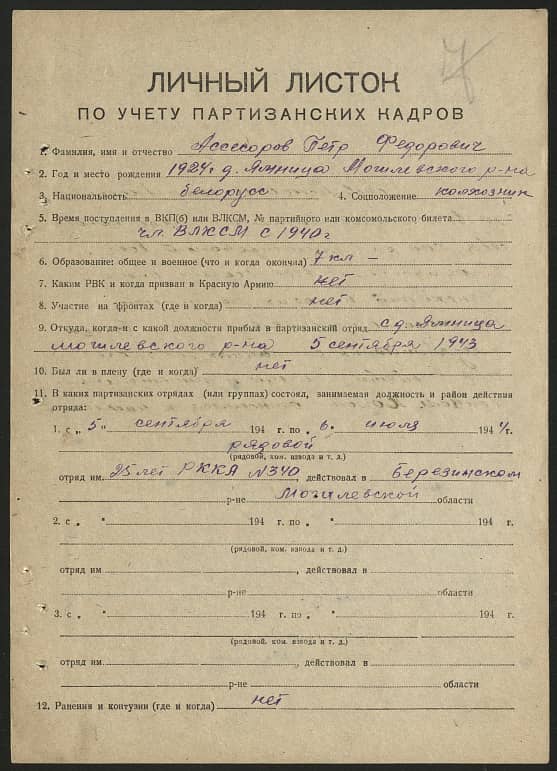 7
ЛИЧНЫЙ ЛИСТОК
ПО УЧЕТУ ПАРТИЗАНСКИХ КАДРОВ
1. Фамилия, имя и отчество Ассесоров Пётр Федорович
2. Год и место рождения 1924г д. Амница Могилевского р-на
3. Национальность белорусс 4. Соцположение колхозник
5. Время поступления в ВКП(б) или ВЛКСМ, № партийного или комсомольского билета
чл. ВЛКСМ с 1940 г
6. Образование: общее и военное (что и когда окончил) 7 кл –
7. Каким РВК и когда призван в Красную Армию нет
8. Участие на фронтах (где и когда) нет
9. Откуда, когда и с какой должности прибыл в партизанский отряд с д. Амница
Могилевского р-на 5 сентября 1943
10. Был ли в плену (где и когда) нет
11. В каких партизанских отрядах (или группах) состоял, занимаемая должность и район действия
отряда:
1. с „5" сентября 194 г. по „6. июля 1944г.
рядовой
(рядовой, ком. взвода и т. д.)
отряд им. 25 лет РККА N 340, действовал в Березинском
р-не Могилевской области
2. с „ " 194 г. по „ " 194 г.
(рядовой, ком. взвода и т. д.)
отряд им , действовал в
р-не области
3. с „ " 194 г. по „ " 194 г.
(рядовой, ком. взвода и т. д.)
отряд им , действовал в
р-не области
12. Ранения и контузии (где и когда) нет